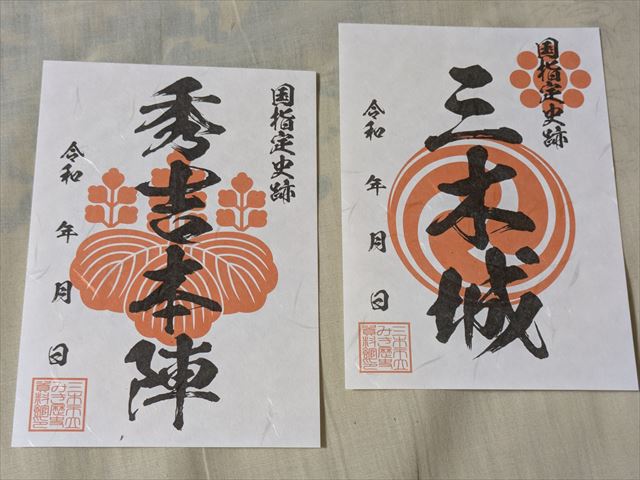 国指定史跡
秀吉本陣
令和 年 月 日
三木市立
みき歴史
資料館印
国指定史跡
三木城
令和 年 月 日
三木市立
みき歴史
資料館印